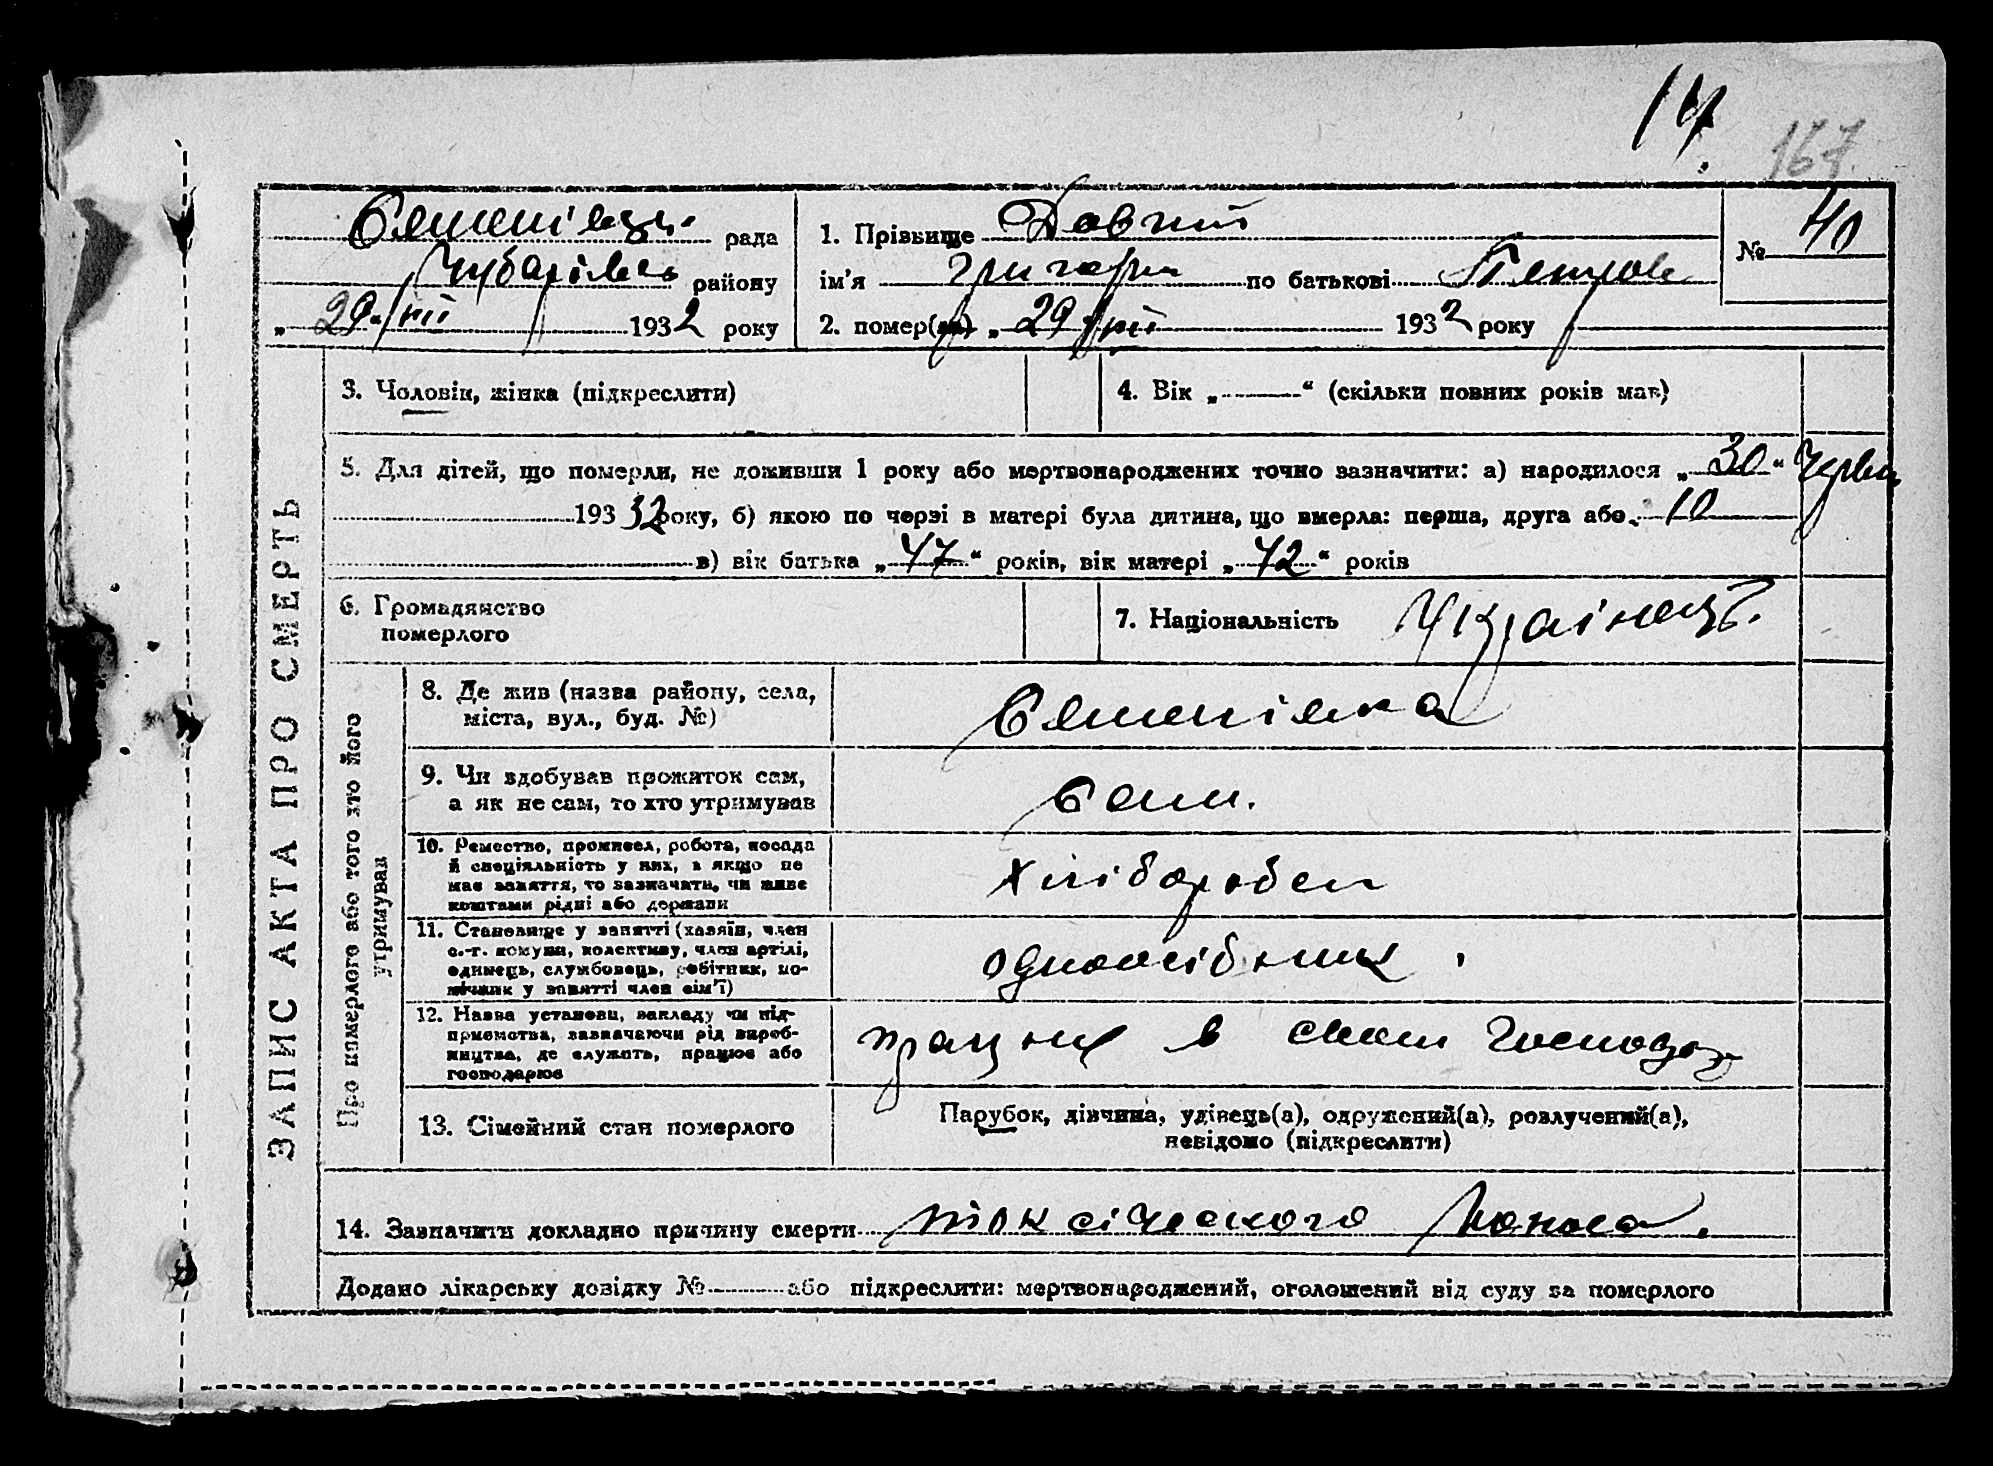 14.
167.
Семенівськ. рада
Чубарівськ району
„29“/VII 1932 року
1. Прізвище Довгий
ім'я Григорій по батькові Петров
2. помер(ла) „29“/VII 1932 року
№ 40
ЗАПИС АКТА ПРО СМЕРТЬ
3. Чоловік, жінка (підкреслити)
4. Вік „ “ (скільки повних років мав)
5. Для дітей, що померли, не доживши 1 року або мертвонароджених точно зазначити: а) народилося „30“ Червн
193 32 року, б) якою по черзі в матері була дитина, що вмерла: перша, друга або 10
в) вік батька „47“ років, вік матері „42“ років
6. Громадянство
померлого
7. Національність Українець.
Про померлого або того хто його
утримував
8. Де жив (назва району, села,
міста, вул., буд. №)
Семенівка
9. Чи здобував прожиток сам,
а як не сам, то хто утримував
Сам.
10. Ремество, промисел, робота, посада
й спеціяльність у них, а якщо не
має заняття, то зазначати, чи живе
коштами рідні або держави
Хліборобст
11. Становище у занятті (хазяїн, член
с.-г. комуни, колективу, член артілі,
одинець, службовець, робітник, по-
мічник у занятті член сім'ї)
одноосібник.
12. Назва установи, закладу чи під-
приємства, зазначаючи рід вироб-
ництва, де служить, працює або
господарює
працює в своем господар
13. Сімейний стан померлого
Парубок, дівчина, удівець(а), одружений(а), розлучений(а),
невідомо (підкреслити)
14. Зазначити докладно причину смерти токсіческого поноса.
Додано лікарську довідку № або підкреслити: мертвонароджений, оголошений від суду за померлого